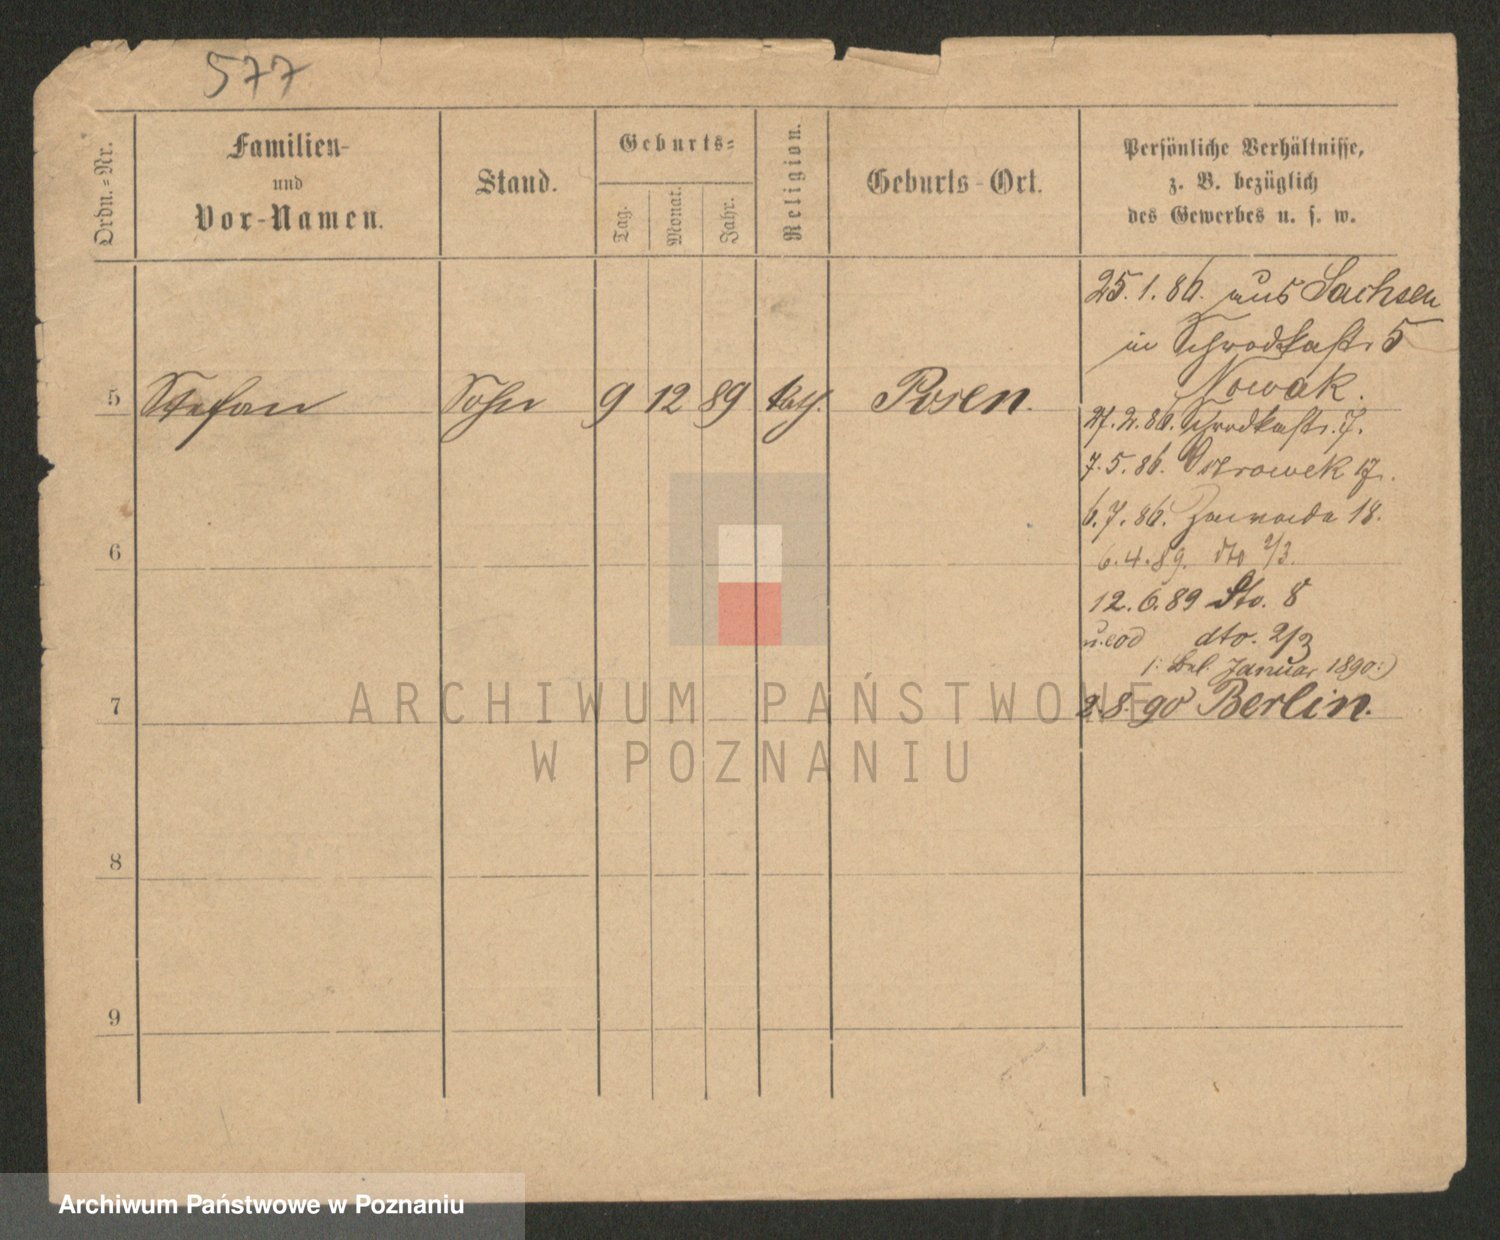 577
Ordn.-Nr.
Familien-
und
Vor-Namen.
Stand.
Geburts-
Tag.
Monat.
Jahr.
Religion.
Geburts-Ort.
Persönliche Verhältnisse,
z. B. bezüglich
des Gewerbes u. s. w.
25. 1. 86. aus Sachsen
in Schrodkastr. 5
Nowak.
5 Stefan Sohn 9 12 89 kath. Posen.
27. 2. 86. Schrodkastr. 7.
7. 5. 86. Ostrowek 17.
6. 7. 86. Zawade 18.
6
6. 4. 89. dto 2/3.
12. 6. 89 dto. 8
u. eod dto. 2/3
Januar 1890:)
7
2. 8. 90 Berlin.
8
9
ARCHIWUM PAŃSTWOWE
W POZNANIU
Archiwum Państwowe w Poznaniu